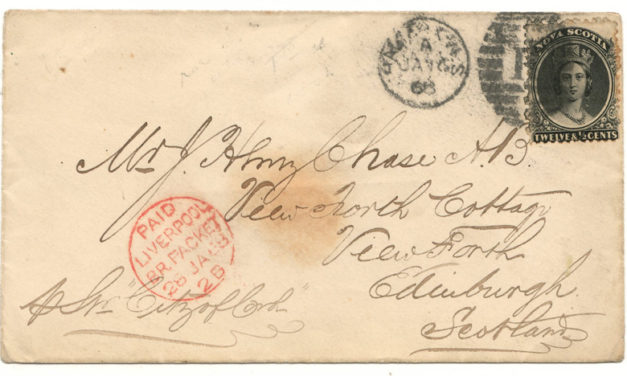 HALIFAX N.S
A
JA 16
68
NOVA SCOTIA
TWELVE & ½ CENTS
Mr J. Henry Chase A.B.
View North Cottage
View Forth
Edinburgh
Scotland
PAID
LIVERPOOL
BR. PACKET
28 JA 68
2B
p Str "City of Cork"